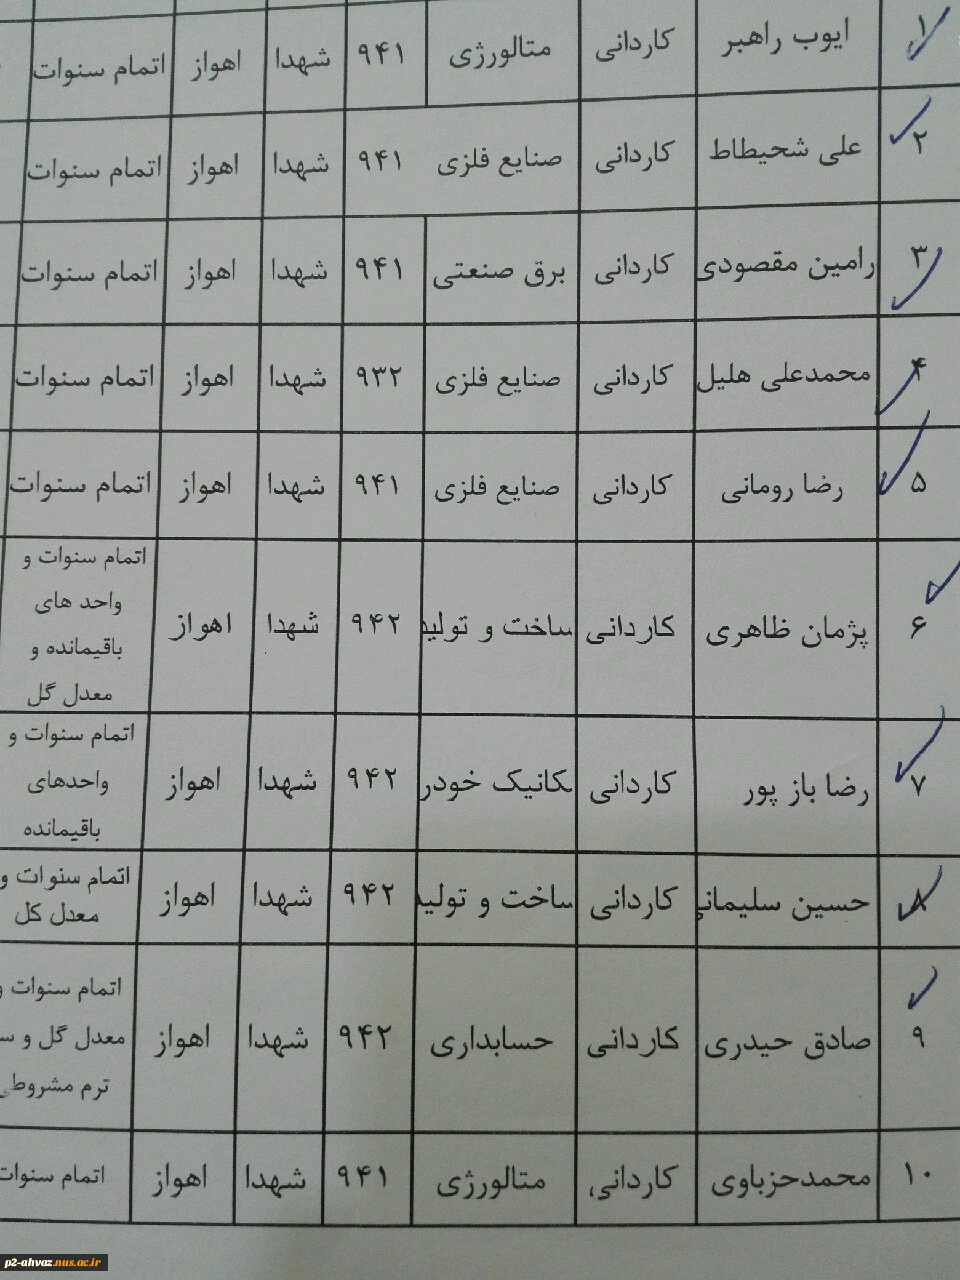 ۱ ایوب راهبر کاردانی متالورژی ۹۴۱ شهدا اهواز اتمام سنوات
۲ علی شحیطاط کاردانی صنایع فلزی ۹۴۱ شهدا اهواز اتمام سنوات
۳ رامین مقصودی کاردانی برق صنعتی ۹۴۱ شهدا اهواز اتمام سنوات
۴ محمدعلی هلیل کاردانی صنایع فلزی ۹۳۲ شهدا اهواز اتمام سنوات
۵ رضا رومانی کاردانی صنایع فلزی ۹۴۱ شهدا اهواز اتمام سنوات
۶ پژمان ظاهری کاردانی ساخت و تولید ۹۴۲ شهدا اهواز اتمام سنوات و
واحد های
باقیمانده و
معدل گل
۷ رضا باز پور کاردانی کانیک خودر ۹۴۲ شهدا اهواز اتمام سنوات و
واحدهای
باقیمانده
۸ حسین سلیمانی کاردانی ساخت و تولید ۹۴۲ شهدا اهواز اتمام سنوات و
معدل کل
۹ صادق حیدری کاردانی حسابداری ۹۴۲ شهدا اهواز اتمام سنوات و
معدل گل و س
ترم مشروطی
۱۰ محمدحزباوی کاردانی متالورژی ۹۴۱ شهدا اهواز اتمام سنوات
p2-ahvaz.nus.ac.ir